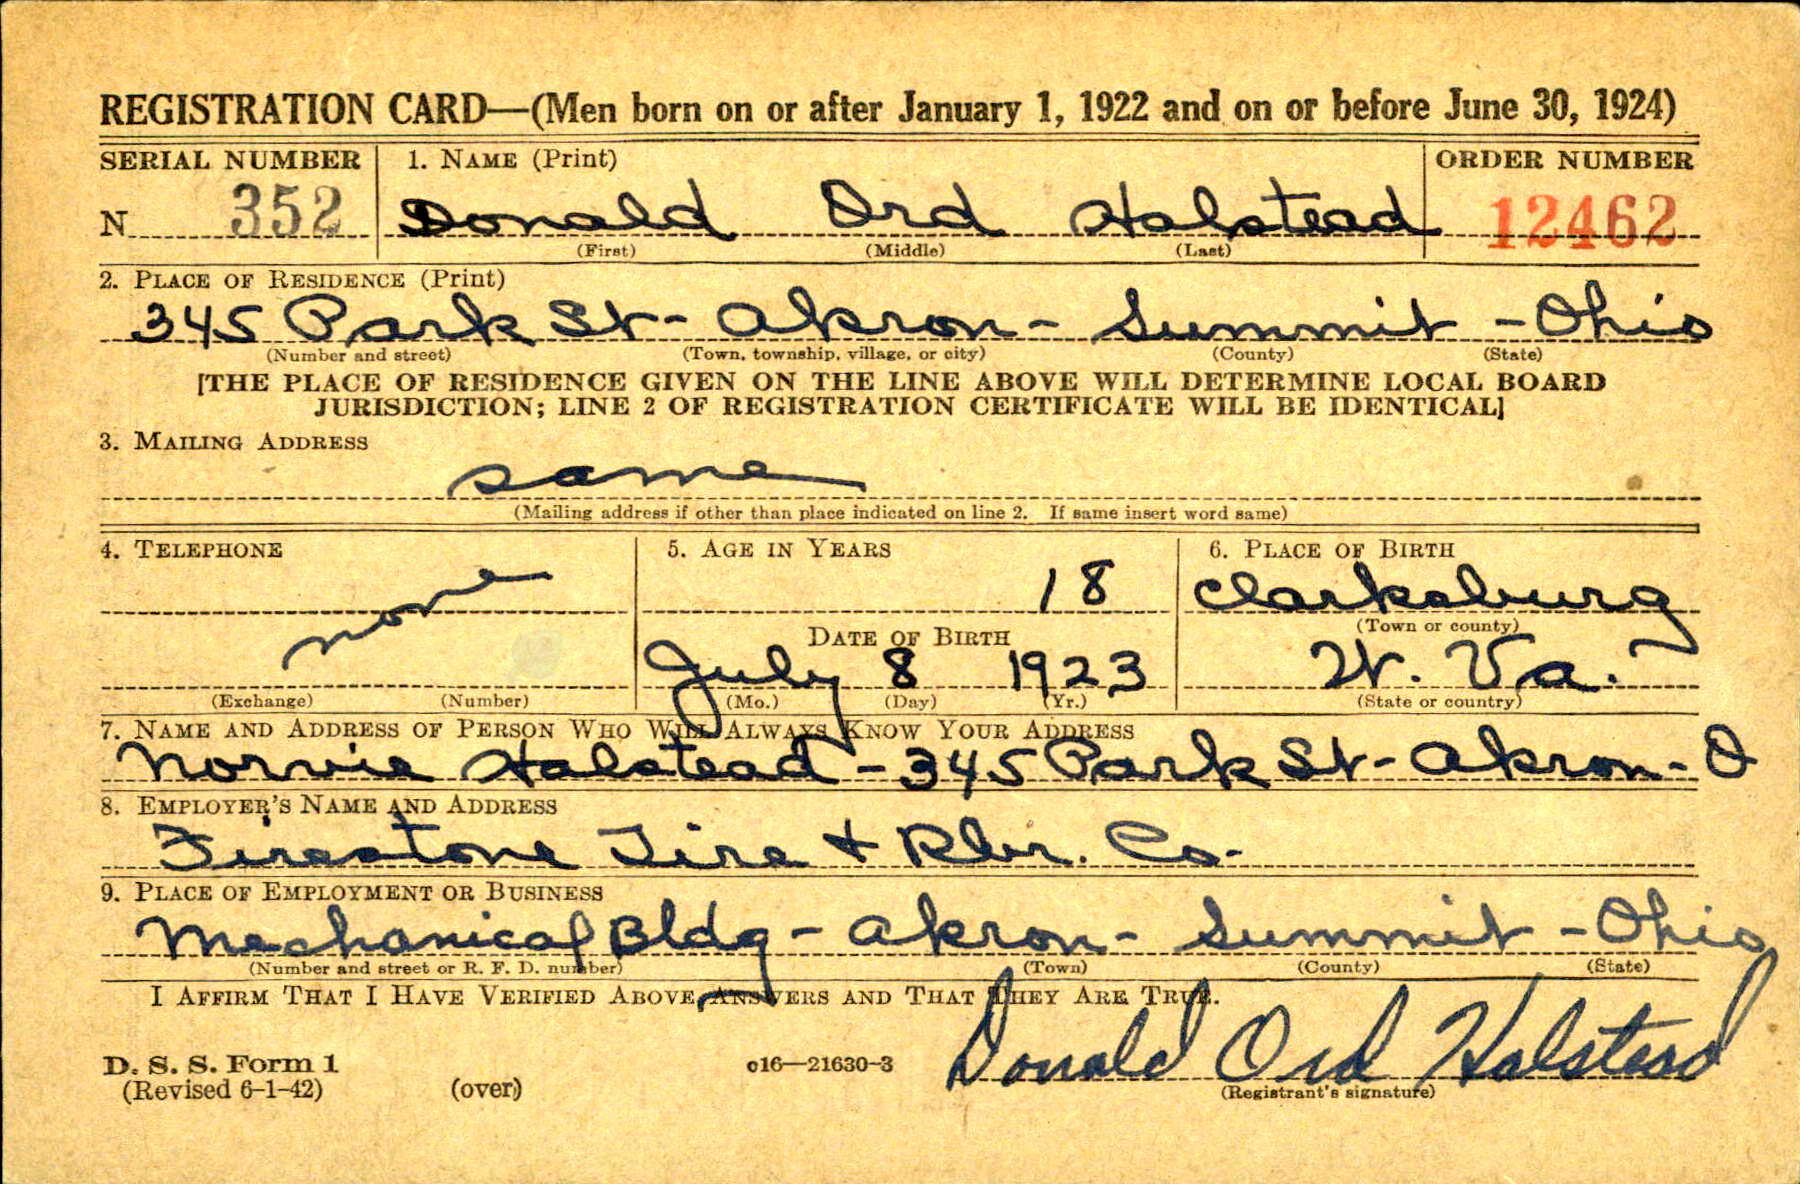 REGISTRATION CARD—(Men born on or after January 1, 1922 and on or before June 30, 1924)
SERIAL NUMBER 1. NAME (Print) ORDER NUMBER
N 352 Donald Ord Halstead 12462
(First) (Middle) (Last)
2. PLACE OF RESIDENCE (Print)
345 Park St - Akron - Summit - Ohio
(Number and street) (Town, township, village, or city) (County) (State)
[THE PLACE OF RESIDENCE GIVEN ON THE LINE ABOVE WILL DETERMINE LOCAL BOARD
JURISDICTION; LINE 2 OF REGISTRATION CERTIFICATE WILL BE IDENTICAL]
3. MAILING ADDRESS
same
(Mailing address if other than place indicated on line 2. If same insert word same)
4. TELEPHONE 5. AGE IN YEARS 6. PLACE OF BIRTH
none 18 Clarksburg
DATE OF BIRTH (Town or county)
July 8 1923 W. Va.
(Exchange) (Number) (Mo.) (Day) (Yr.) (State or country)
7. NAME AND ADDRESS OF PERSON WHO WILL ALWAYS KNOW YOUR ADDRESS
Norvie Halstead - 345 Park St - Akron - O
8. EMPLOYER'S NAME AND ADDRESS
Firestone Tire + Rbr. Co.
9. PLACE OF EMPLOYMENT OR BUSINESS
Mechanical Bldg - Akron - Summit - Ohio
(Number and street or R. F. D. number) (Town) (County) (State)
I AFFIRM THAT I HAVE VERIFIED ABOVE ANSWERS AND THAT THEY ARE TRUE.
Donald Ord Halstead
D. S. S. Form 1 c16—21630-3
(Revised 6-1-42) (over) (Registrant's signature)